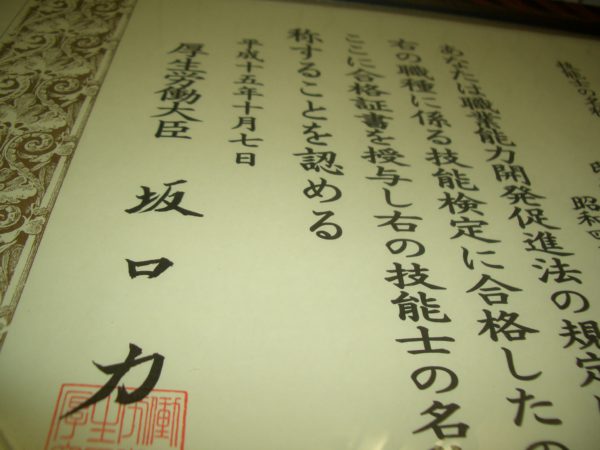 技能士の名称
昭和四
あなたは職業能力開発促進法の規定
右の職種に係る技能検定に合格したの
ここに合格証書を授与し右の技能士の名
称することを認める
平成十五年十月七日
厚生労働大臣 坂口力
厚生労働